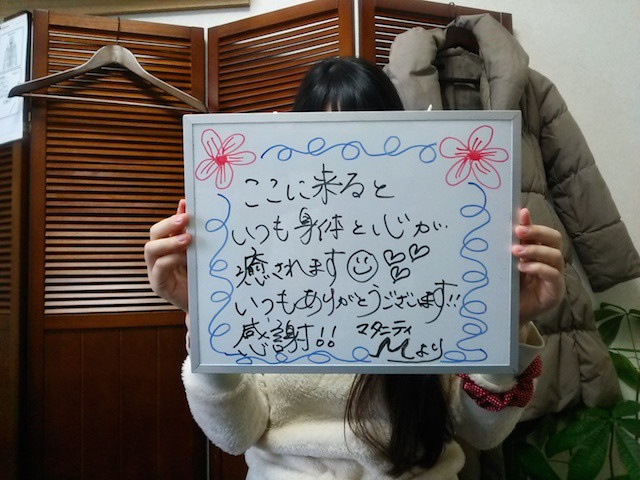 ここに来ると
いつも身体と心が
癒されます
いつもありがとうございます!!
感謝!! マタニティ
Mより